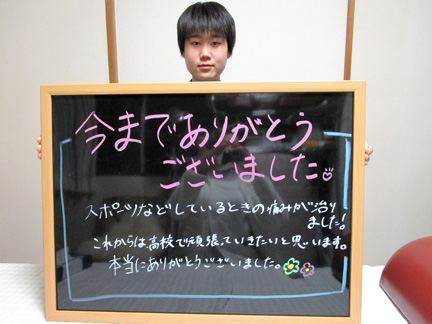 今までありがとう
ございました。
スポーツなどしているときの痛みが治り
ました!
これからは高校で頑張っていきたいと思います。
本当にありがとうございました。